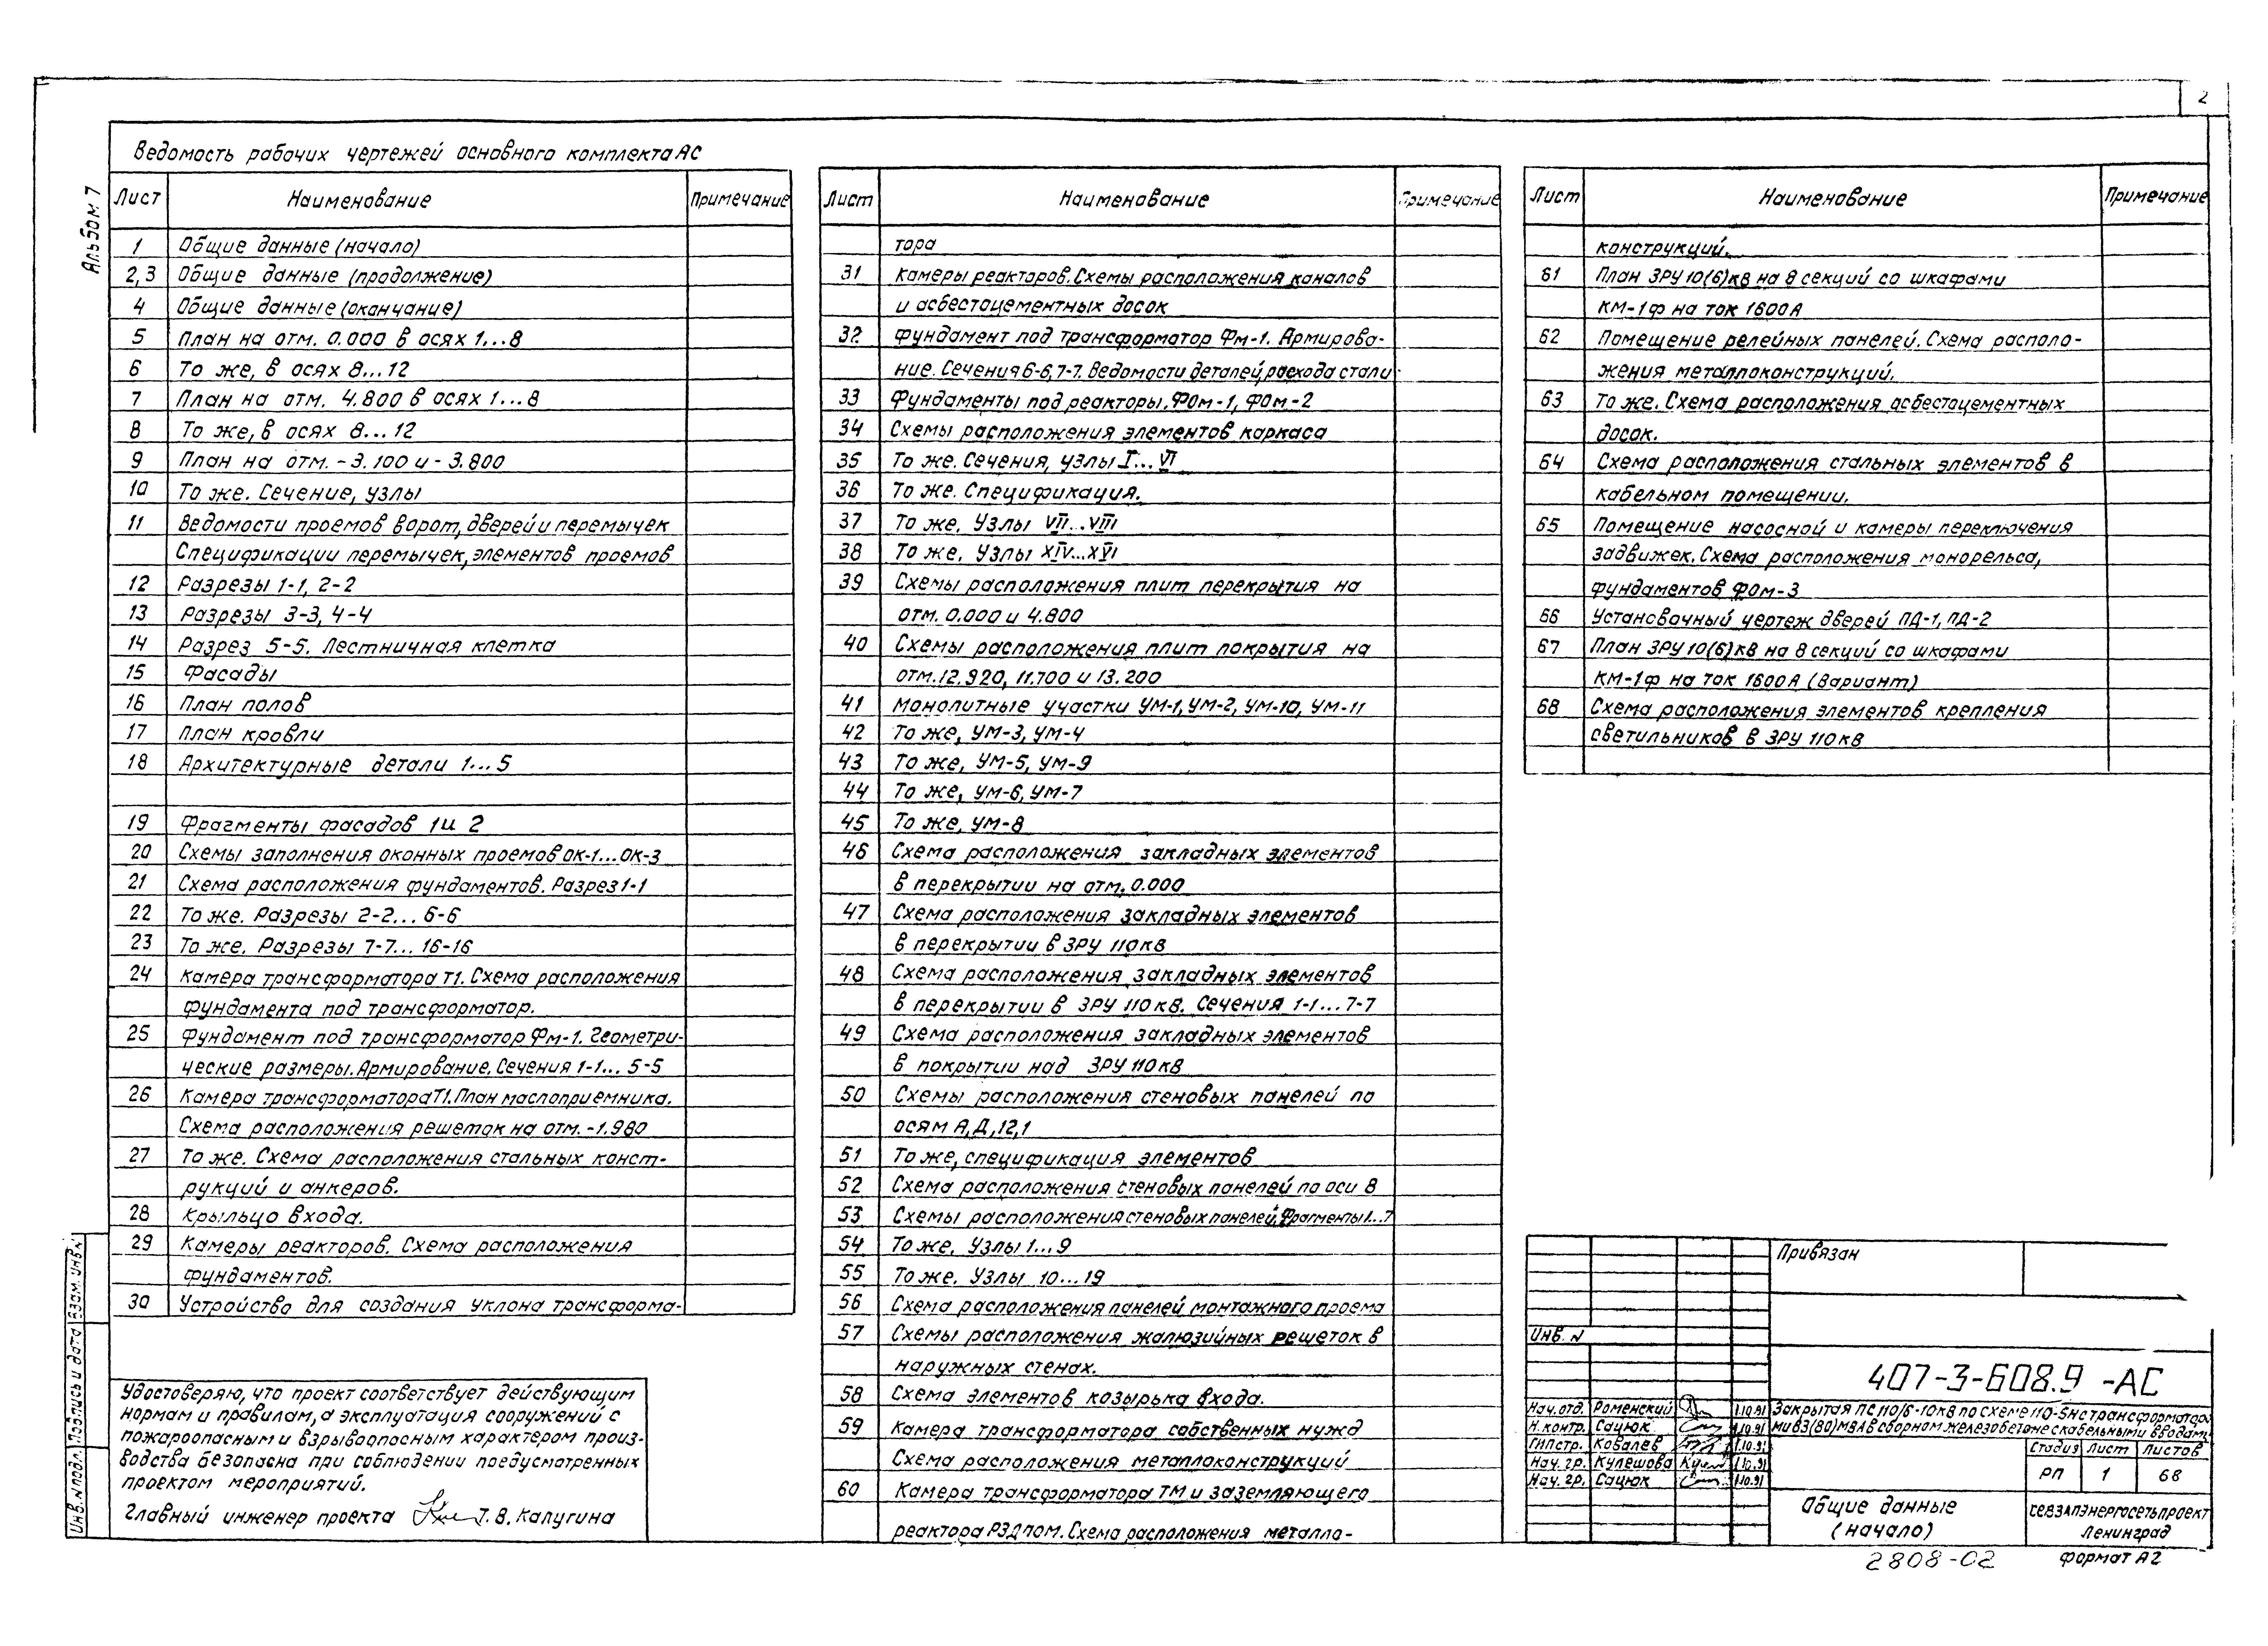 2
Альбом 7
Ведомость рабочих чертежей основного комплекта АС
Лист Наименование Примечание
1 Общие данные (начало)
2,3 Общие данные (продолжение)
4 Общие данные (окончание)
5 План на отм. 0.000 в осях 1...8
6 То же, в осях 8...12
7 План на отм. 4.800 в осях 1...8
8 То же, в осях 8...12
9 План на отм. -3.100 и -3.800
10 То же. Сечение, узлы
11 Ведомости проемов ворот, дверей и перемычек
Спецификации перемычек, элементов проемов
12 Разрезы 1-1, 2-2
13 Разрезы 3-3, 4-4
14 Разрез 5-5. Лестничная клетка
15 Фасады
16 План полов
17 План кровли
18 Архитектурные детали 1...5
19 Фрагменты фасадов 1 и 2
20 Схемы заполнения оконных проемов ОК-1...ОК-3
21 Схема расположения фундаментов. Разрез 1-1
22 То же. Разрезы 2-2...6-6
23 То же. Разрезы 7-7...16-16
24 Камера трансформатора Т1. Схема расположения
фундамента под трансформатор.
25 Фундамент под трансформатор Фм-1. Геометри-
ческие размеры. Армирование. Сечения 1-1...5-5
26 Камера трансформатора Т1. План маслоприемника.
Схема расположения решеток на отм. -1.980
27 То же. Схема расположения стальных конст-
рукций и анкеров.
28 Крыльцо входа.
29 Камеры реакторов. Схема расположения
фундаментов.
30 Устройства для создания уклона трансформа-
Лист Наименование Примечание
тора
31 Камеры реакторов. Схемы расположения каналов
и асбестоцементных досок
32 Фундамент под трансформатор Фм-1. Армирова-
ние. Сечения 6-6, 7-7. Ведомости деталей, расхода стали
33 Фундаменты под реакторы. ФОм-1, ФОм-2
34 Схемы расположения элементов каркаса
35 То же. Сечения, узлы I...VI
36 То же. Спецификация.
37 То же. Узлы VII...VIII
38 То же. Узлы XIV...XVI
39 Схемы расположения плит перекрытия на
отм. 0.000 и 4.800
40 Схемы расположения плит покрытия на
отм. 12.920, 11.700 и 13.200
41 Монолитные участки УМ-1, УМ-2, УМ-10, УМ-11
42 То же, УМ-3, УМ-4
43 То же, УМ-5, УМ-9
44 То же, УМ-6, УМ-7
45 То же, УМ-8
46 Схема расположения закладных элементов
в перекрытии на отм. 0.000
47 Схема расположения закладных элементов
в перекрытии в ЗРУ 110 кВ
48 Схема расположения закладных элементов
в перекрытии в ЗРУ 110 кВ. Сечения 1-1...7-7
49 Схема расположения закладных элементов
в покрытии над ЗРУ 110 кВ
50 Схемы расположения стеновых панелей по
осям А, Д, 12, 1
51 То же, спецификация элементов
52 Схема расположения стеновых панелей по оси 8
53 Схемы расположения стеновых панелей. Фрагменты 1...7
54 То же. Узлы 1...9
55 То же. Узлы 10...19
56 Схема расположения панелей монтажного проема
57 Схемы расположения жалюзийных решеток в
наружных стенах.
58 Схема элементов козырька входа.
59 Камера трансформатора собственных нужд
Схема расположения металлоконструкций
60 Камера трансформатора ТМ и заземляющего
реактора РЗДПОМ. Схема расположения металло-
Лист Наименование Примечание
конструкций.
61 План ЗРУ 10(6)кВ на 8 секций со шкафами
КМ-1Ф на ток 1600А
62 Помещение релейных панелей. Схема располо-
жения металлоконструкций.
63 То же. Схема расположения асбестоцементных
досок.
64 Схема расположения стальных элементов в
кабельном помещении.
65 Помещение насосной и камеры переключения
задвижек. Схема расположения монорельса,
фундаментов ФОм-3
66 Установочный чертеж дверей ПД-1, ПД-2
67 План ЗРУ 10(6)кВ на 8 секций со шкафами
КМ-1Ф на ток 1600А (вариант)
68 Схема расположения элементов крепления
светильников в ЗРУ 110 кВ
Удостоверяю, что проект соответствует действующим
нормам и правилам, а эксплуатация сооружений с
пожароопасным и взрывоопасным характером произ-
водства безопасна при соблюдении предусмотренных
проектом мероприятий.
Главный инженер проекта Т.В. Калугина
Инв.N подл. Подпись и дата Взам. инв.N
Привязан
Инв. N
407-3-608.9 -АС
Нач. отд. Роменский 1.10.91
Н. контр. Сацюк 1.10.91
ГИПстр. Ковалев 1.10.91
Нач. гр. Кулешова 1.10.91
Нач. гр. Сацюк 1.10.91
Закрытая ПС 110/6-10кВ по схеме 110-5Н с трансформатора-
ми 63(80)МВА в сборном железобетоне с кабельными вводами
Стадия Лист Листов
РП 1 68
Общие данные
(начало)
СЕВЗАПЭНЕРГОСЕТЬПРОЕКТ
Ленинград
2808-02
Формат А2